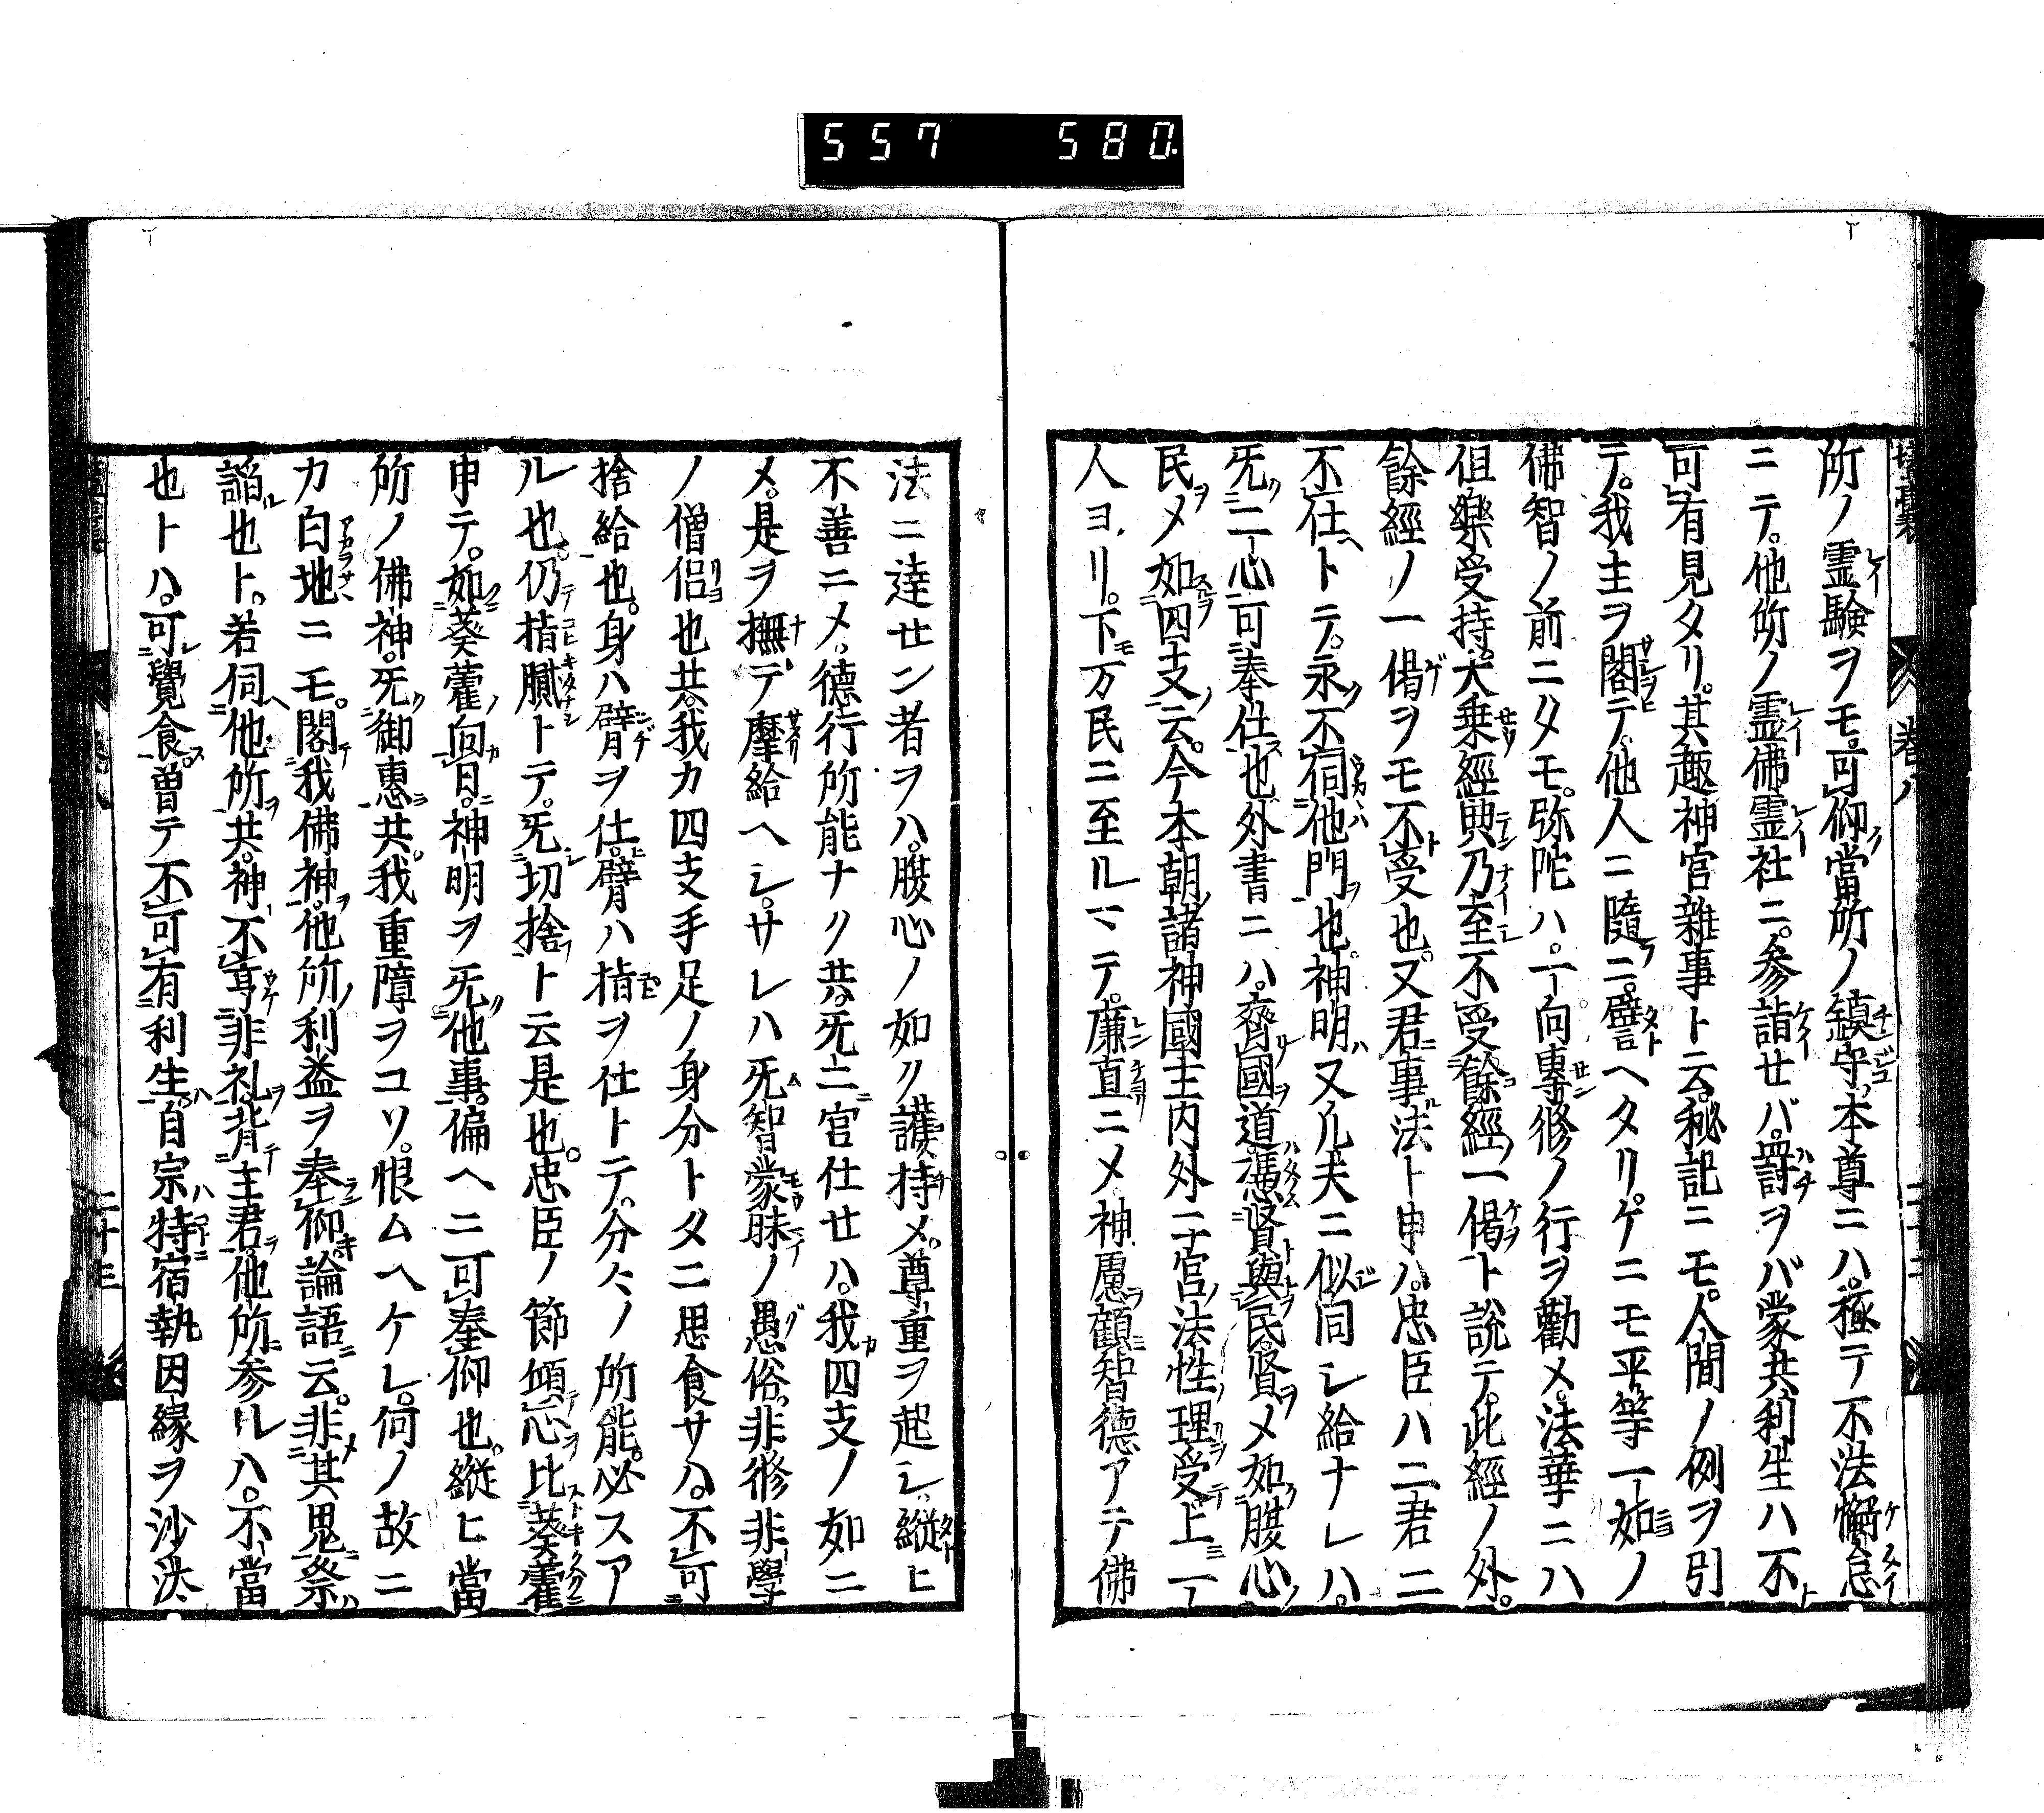 557 580
所ノ霊験ヲモ。可仰當所ノ鎮守本尊ニハ。極テ不法懈怠
ニテ。他所ノ霊佛霊社ニ。参詣せバ。罸ヲバ蒙共利生ハ不
可有見タリ。其趣神宮雜事ト云。秘記ニモ。人間ノ例ヲ引
テ。我主ヲ閣テ。他人ニ隨ニ。譬ヘタリゲニモ平等一如ノ
佛智ノ前ニタモ。弥陀ハ。一向專修ノ行ヲ勸メ。法華ニハ
但樂受持。大乗經典乃至不受餘經ノ一偈ト說テ。此經ノ外。
餘經ノ一偈ヲモ不受也。又君ニ事法ト申ハ。忠臣ハ二君ニ
不仕ヘトテ。永不伺他門也。神明ハ又凡夫ニ似同シ給ナレハ。
旡二心可奉仕也外書ニハ。齊國道憑賢與民賢ヲメ如腹心
民ヲメ如四支云。今本朝諸神國主内外二宮法性ノ理受上一
人ヨリ。下万民ニ至ルマテ。廉直ニメ神慮顧智德アテ佛
法ニ達せン者ヲハ。腹心ノ如ク護持メ。尊重ヲ起シ。縱ヒ
不善ニメ。德行所能ナク共。旡二官仕せハ。我四支ノ如ニ
メ。是ヲ撫テ摩給ヘシ。サレハ旡智蒙昧ノ愚俗。非修非學
ノ僧侶也共。我カ四支手足ノ身分トタニ思食サハ。不可
捨給也。身ハ臂ヲ仕。臂ハ指ヲ仕トテ。分々ノ所能。必スア
ル也。仍指膩トテ。旡切捨ト云是也。忠臣ノ節傾心比葵藿
申テ。如葵藿向日。神明ヲ旡他事。偏ヘニ可奉仰也。縱ヒ當
所ノ佛神。旡御惠共。我重障ヲコソ。恨ムヘケレ。何ノ故ニ
カ白地ニモ。閣我佛神。他所ノ利益ヲ奉仰。論語云。非其鬼祭
謟也ト。若伺他所共。神不享非礼。背主君。他所參ルハ。不當
也トハ。可覺食。曽テ不可有利生。自宗特宿執因緣ヲ沙汰